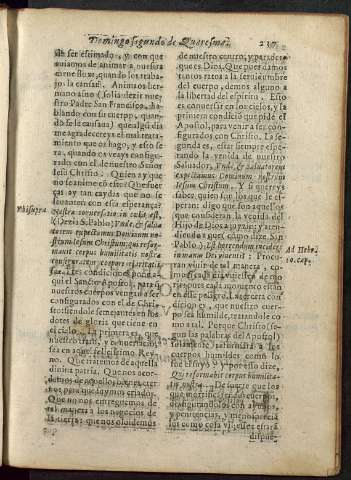 Domingo segundo de Quaresma.
de ser estimado, y con que
uiamos de animar a nuestra
carne flaca, quando los traba-
jos la cansan. Animaos her-
mano asno (solia dezir nuestro
Padre San Francisco, ha-
blando con su cuerpo, quan-
do se le cansaua) que algũ dia
me agradecereys el mal trata-
miento que os hago, y esto se-
ra, quando os veays configu-
rado con el de nuestro Señor
Iesu Christo. Quien ay que
no se anime cõ esto? Que fuer-
ças ay tan caydas que no se
leuanten con esta esperança?
Phi
Nostra conuersatio in cœlis est,
(Dezia S. Pablo) Vnde, & salua-
torem expectamus Dominum no-
strum Iesum Christum, qui refor-
mabit corpus humilitatis nostræ
configuratum corpori claritatis
suæ. Tres condiciones pone a-
qui el Sancto Apostol, para que
nuestros cuerpos vengan a ser
configurados con el de Chri-
sto siendole semejantes en los
dotes de gloria que tiene en
el cielo. La primera es, que
nuestro trato, y comunicaciõ
sea en aquel felicissimo Rey-
no. Que tratemos de aquella
diuina patria. Que nos acor-
demos de aquellos
para que fuymos criados.
Que no entreguemos de
tal manera a los negocios de
la tierra, que nos oluidemos
de nuestro centro, y paradero
que es Dios. Que pues damos
tantos ratos a la seruidumbre
del cuerpo, demos alguno a
la libertad del espiritu. Esto
es conuersar en los cielos, y la
primera condiciõ que pide el
Apostol, para venir a ser con-
figurados con Christo. La se-
gunda es, estar siempre espe-
rando la venida de nuestro
Saluador, Vnde, & saluatorem
expectamus Dominum nostrum
Iesum Christum. Y si quereys
saber, quien son los que le espe-
ran: digo que son aquellos
que consideran la venida del
Hijo de Dios a juyzio; aten-
diendo a aquel como dize San
Pablo; Est horrendum incidere
in manus Dei viuentis: Procu-
Ad Hebr.
10. cap.
ran viuir de tal manera, co-
mo si cada dia vuiessen de mo-
rir: pues cada momento estan
en esse peligro. La tercera con-
dicion es, que nuestro cuer-
po sea humilde, tratandole co-
mo a tal. Porque Christo (se-
gun las palabras del Apostol)
solamente reformará a los
cuerpos humildes como lo
fue el suyo y por esso dize,
Qui reformabit corpus humilita-
tis nostræ. De suerte que los
que mortificaren sus cuerpos,
configurandolos con ayunos,
y penitencias, y menosprecia
los como cosa vil, esse estará
dispue-